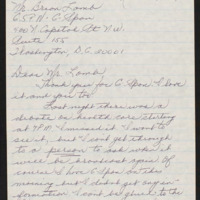 Mr. Brian Lamb
C.S.P.A.N. C-Span
400 N. Capitol St N.W.
Suite 155
Washington, D.C. 20001
Dear Mr. Lamb,
Thank you for C-Span. I love
it and you too.
Last night there was a
debate on health care starting
at P.M. I missed it. I want to
see it, but can't get through
to a person to ask when it
will be broadcast again. Of
course I love C-Span in the
morning, but I didn't get any in-
formation. I can't be glued to the